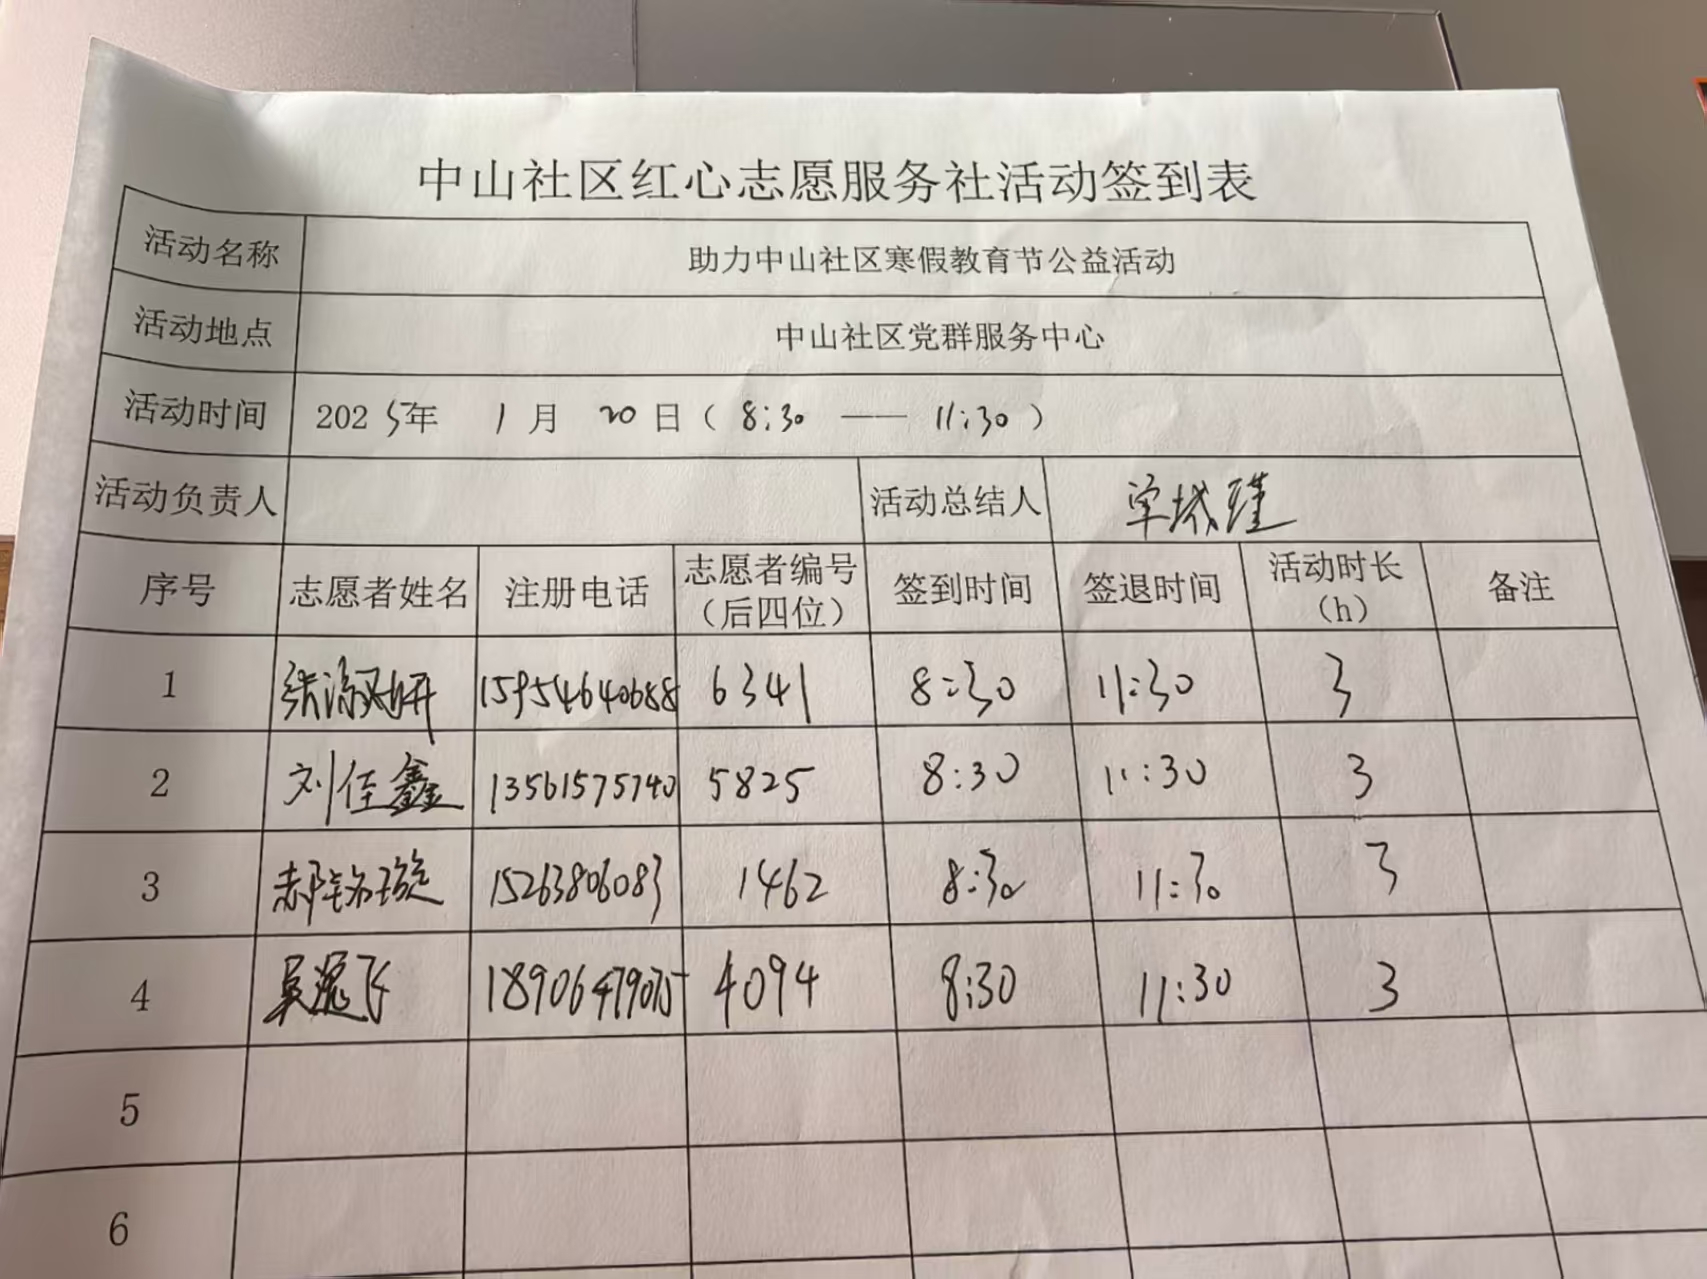 中山社区红心志愿服务社活动签到表
活动名称 助力中山社区寒假教育节公益活动
活动地点 中山社区党群服务中心
活动时间 2025年 1月 20日（8:30 —— 11:30）
活动负责人 活动总结人 单城瑾
序号 志愿者姓名 注册电话 志愿者编号（后四位） 签到时间 签退时间 活动时长（h） 备注
1 15954640688 6341 8:30 11:30 3
2 刘佳鑫 13561575740 5825 8:30 11:30 3
3 郝铭璇 15263806083 1462 8:30 11:30 3
4 吴逸飞 18906479075 4094 8:30 11:30 3
5
6